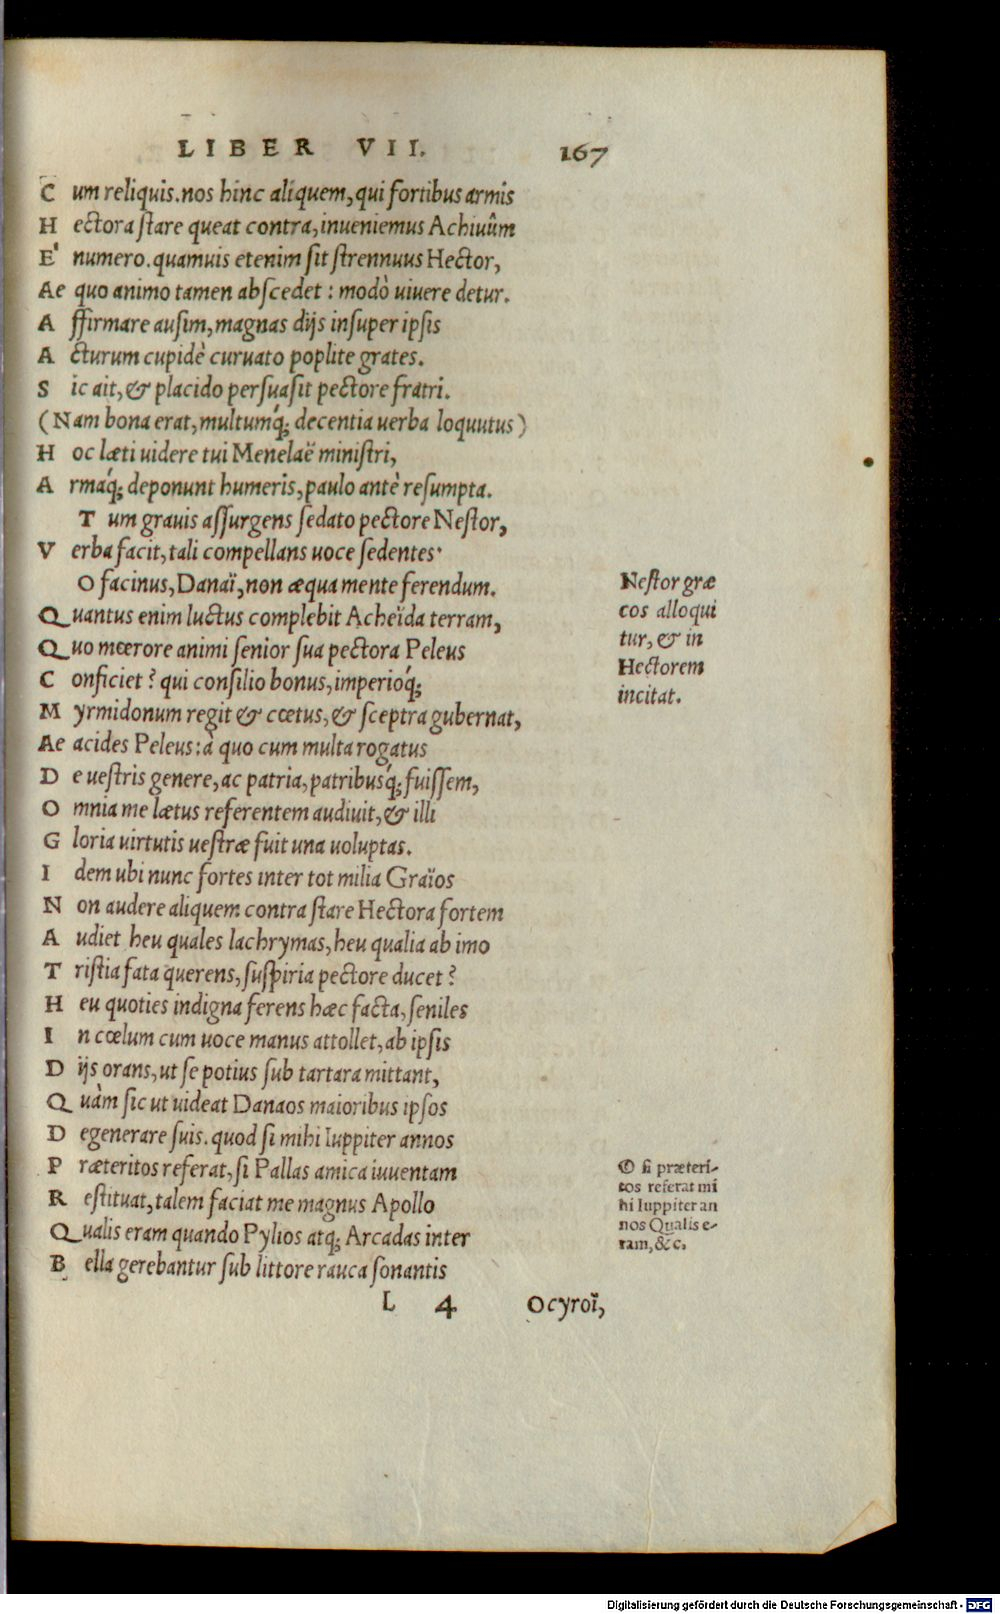 LIBER VII. 167
Cum reliquis. nos hinc aliquem, qui fortibus armis
Hectora ſtare queat contra, inueniemus Achiuûm
E' numero. quamuis etenim ſit ſtrennuus Hector,
Aequo animo tamen abſcedet: modò uiuere detur.
Affirmare auſim, magnas dijs inſuper ipſis
Acturum cupidè curuato poplite grates.
Sic ait, & placido perſuaſit pectore fratri.
(Nam bona erat, multumq́; decentia uerba loquutus)
Hoc læti uidere tui Menelaë miniſtri,
Armaq́; deponunt humeris, paulo antè reſumpta.
Tum grauis aſſurgens ſedato pectore Neſtor,
Verba facit, tali compellans uoce ſedentes·
O facinus, Danaï, non æqua mente ferendum.
Quantus enim luctus complebit Acheïda terram,
Quo mœrore animi ſenior ſua pectora Peleus
Conficiet? qui conſilio bonus, imperioq́;
Myrmidonum regit & cœtus, & ſceptra gubernat,
Aeacides Peleus: à quo cum multa rogatus
De ueſtris genere, ac patria, patribusq́; fuiſſem,
Omnia me lætus referentem audiuit, & illi
Gloria uirtutis ueſtræ fuit una uoluptas.
Idem ubi nunc fortes inter tot milia Graïos
Non audere aliquem contra ſtare Hectora fortem
Audiet heu quales lachrymas, heu qualia ab imo
Triſtia fata querens, ſuſpiria pectore ducet?
Heu quoties indigna ferens hæc facta, ſeniles
In cœlum cum uoce manus attollet, ab ipſis
Dijs orans, ut ſe potius ſub tartara mittant,
Quàm ſic ut uideat Danaos maioribus ipſos
Degenerare ſuis. quod ſi mihi Iuppiter annos
Præteritos referat, ſi Pallas amica iuuentam
Reſtituat, talem faciat me magnus Apollo
Qualis eram quando Pylios atq; Arcadas inter
Bella gerebantur ſub littore rauca ſonantis
L 4 Ocyroï,
Neſtor græ
cos alloqui
tur, & in
Hectorem
incitat.
O ſi præteri-
tos referat mi
hi Iuppiter an
nos Qualis e-
ram, &c.
Digitalisierung gefördert durch die Deutsche Forschungsgemeinschaft - DFG